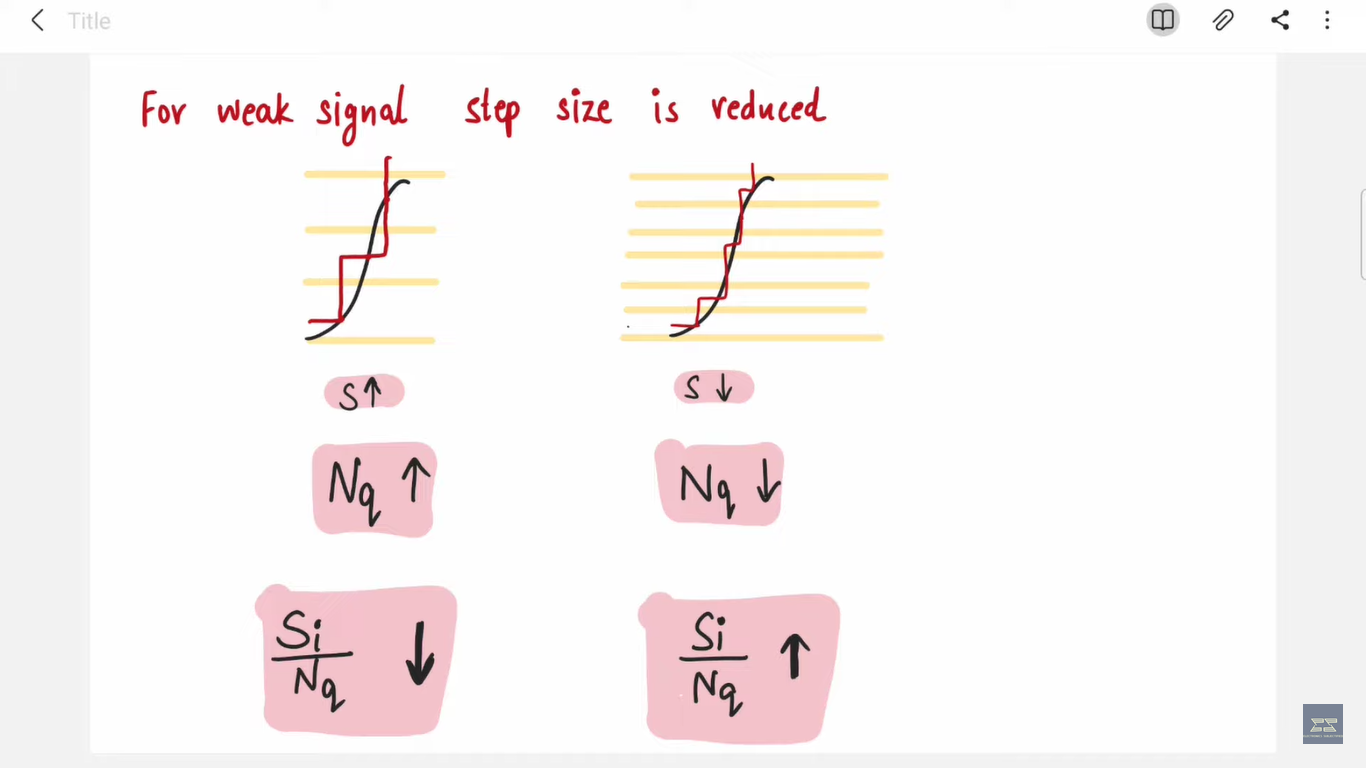 Title
For weak signal step size is reduced
S↑ S↓
Nq ↑ Nq ↓
Si/Nq ↓ Si/Nq ↑